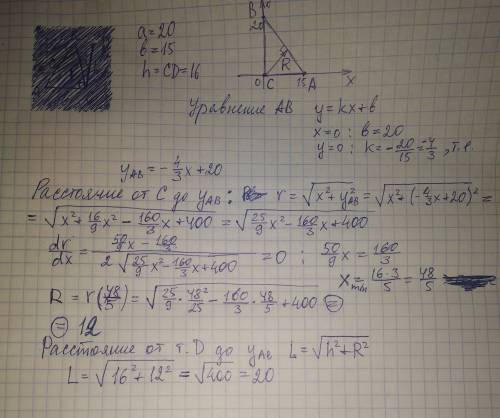 a = 20
b = 15
h = CD = 16
B
20
R
0 C 15 A x
Уравнение AB y = kx + b
x = 0 : b = 20
y = 0 : k = -20/15 = -4/3, т.е.
y_AB = -4/3 x + 20
Расстояние от C до y_AB : r = √(x² + y²_AB) = √(x² + (-4/3 x + 20)²) =
= √(x² + 16/9 x² - 160/3 x + 400) = √(25/9 x² - 160/3 x + 400)
dr/dx = (50/9 x - 160/3) / (2√(25/9 x² - 160/3 x + 400)) = 0 ; 50/9 x = 160/3
x_min = 16·3/5 = 48/5
R = r(48/5) = √(25/9 · 48²/25 - 160/3 · 48/5 + 400) =
= 12
Расстояние от т. D до y_AB L = √(h² + R²)
L = √(16² + 12²) = √400 = 20